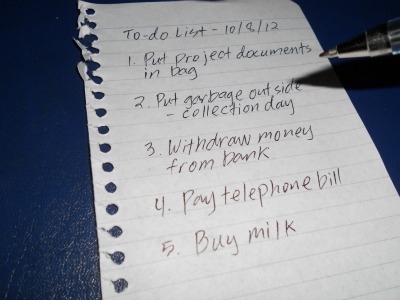 To-do List - 10/8/12
1. Put project documents
in bag
2. Put garbage outside
- collection day
3. Withdraw money
from bank
4. Pay telephone bill
5. Buy milk